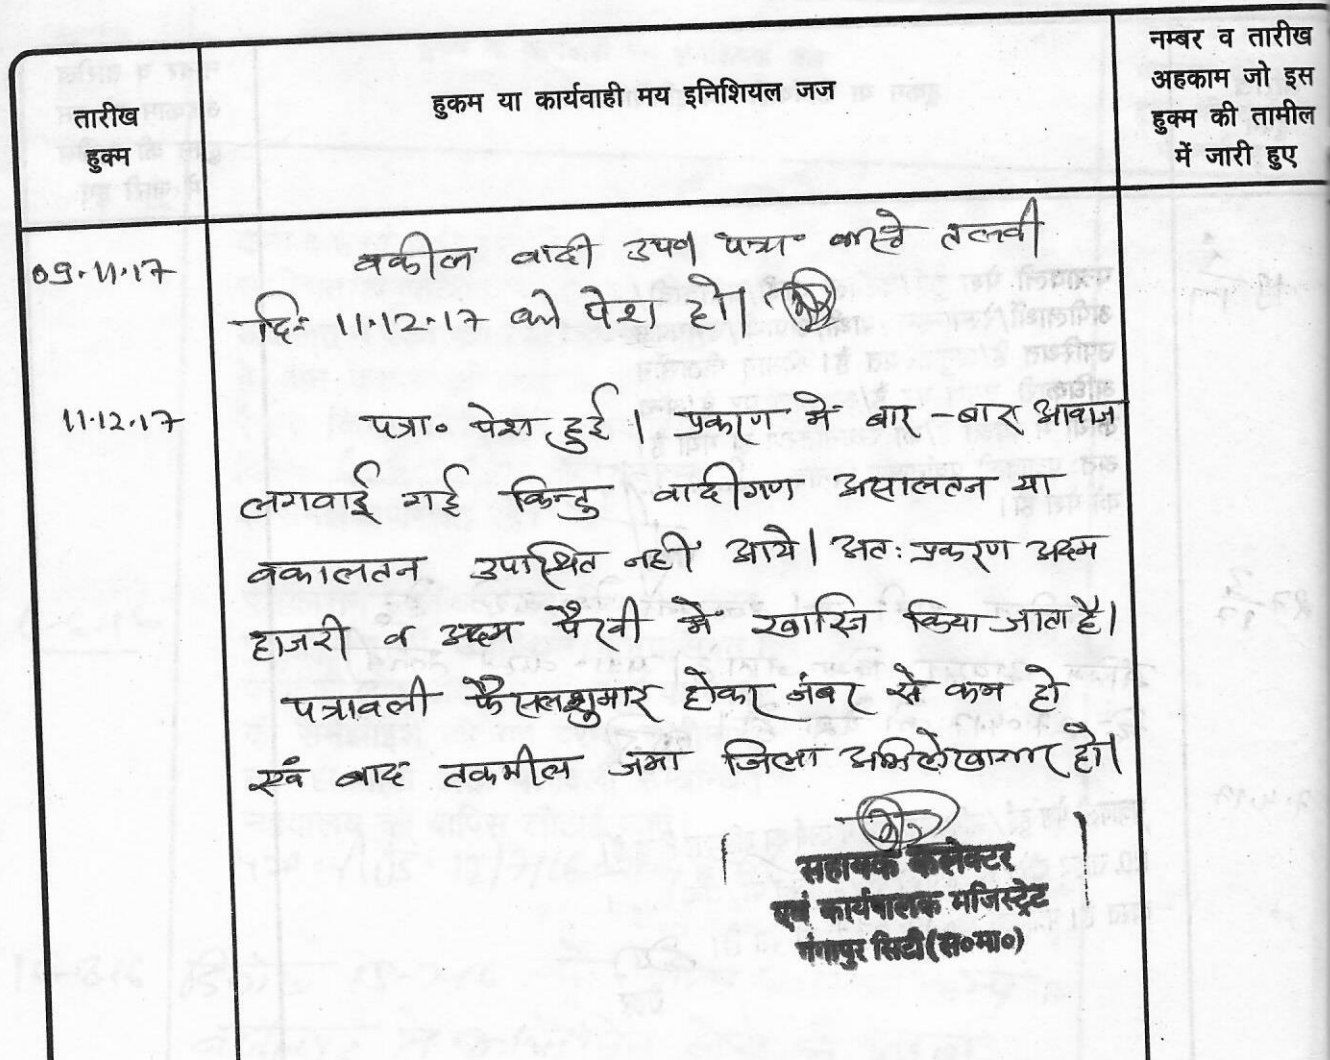 तारीख
हुक्म
हुकम या कार्यवाही मय इनिशियल जज
नम्बर व तारीख
अहकाम जो इस
हुक्म की तामील
में जारी हुए
09.11.17
वकील वादी उप० पत्रा० वास्ते तलवी
दि० 11.12.17 को पेश हो।
11.12.17
पत्रा० पेश हुई। प्रकरण मे बार-बार आवाज
लगवाई गई किन्तु वादीगण असालतन या
वकालतन उपस्थित नही आये। अतः प्रकरण अदम
हाजरी व अदम पैरवी मे खारिज किया जाता है।
पत्रावली फैसलशुमार होकर नंबर से कम हो
एवं बाद तकमील जमा जिला अभिलेखागार हो।
सहायक कलेक्टर
एवं कार्यपालक मजिस्ट्रेट
गंगापुर सिटी (स०मा०)